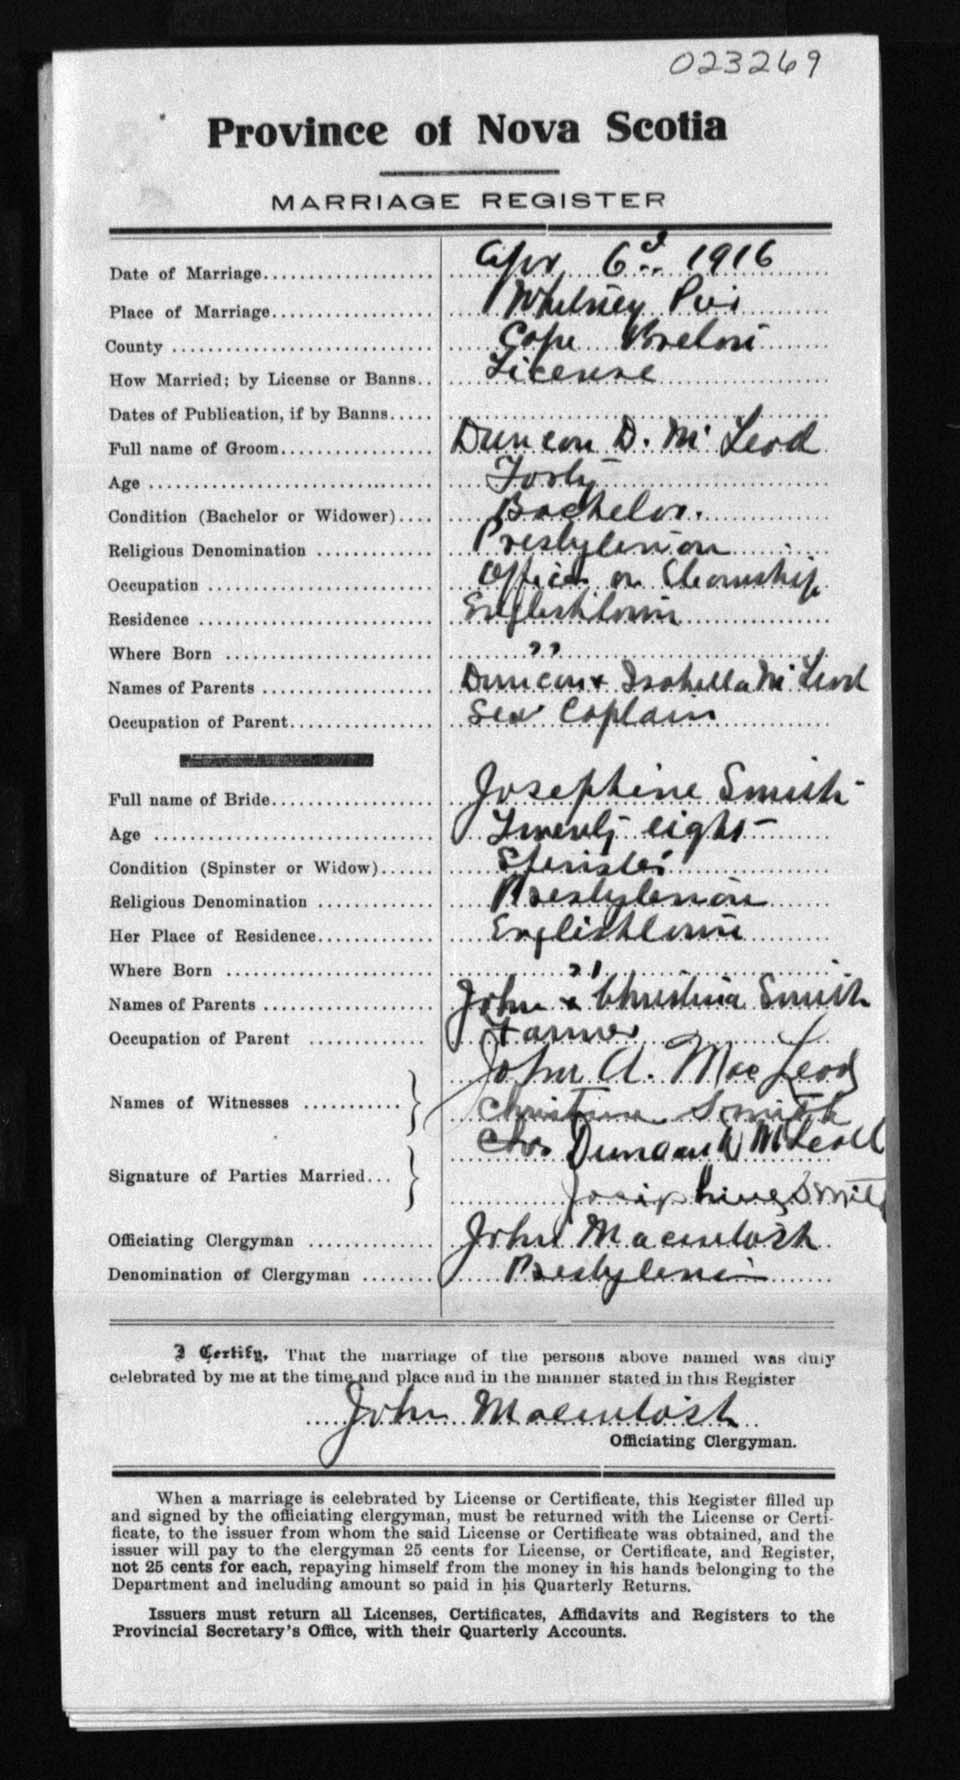 023269
Province of Nova Scotia
MARRIAGE REGISTER
Date of Marriage.................... Apr 6th 1916
Place of Marriage................... Whitney Pier
County ............................. Cape Breton
How Married; by License or Banns.. License
Dates of Publication, if by Banns.....
Full name of Groom................. Duncan D. McLeod
Age ............................... Forty
Condition (Bachelor or Widower).... Bachelor.
Religious Denomination ............. Presbyterian
Occupation ......................... Officer on Steamship
Residence .......................... Englishtown
Where Born ........................ " "
Names of Parents ................... Duncan & Isabella McLeod
Occupation of Parent................ Sea Captain
Full name of Bride.................. Josephine Smith
Age ............................... Twenty eight
Condition (Spinster or Widow)...... Spinster
Religious Denomination ............. Presbyterian
Her Place of Residence............. Englishtown
Where Born ........................ " "
Names of Parents ................... John & Christina Smith
Occupation of Parent ............... Farmer
John A. MacLeod
Names of Witnesses ...........} Christina Smith
Duncan D McLeod
Signature of Parties Married...}
Josephine Smith
Officiating Clergyman .............. John Macintosh
Denomination of Clergyman ........ Presbyterian
I Certify, That the marriage of the persons above named was duly
celebrated by me at the time and place and in the manner stated in this Register
John Macintosh
Officiating Clergyman.
When a marriage is celebrated by License or Certificate, this Register filled up
and signed by the officiating clergyman, must be returned with the License or Certi-
ficate, to the issuer from whom the said License or Certificate was obtained, and the
issuer will pay to the clergyman 25 cents for License, or Certificate, and Register,
not 25 cents for each, repaying himself from the money in his hands belonging to the
Department and including amount so paid in his Quarterly Returns.
Issuers must return all Licenses, Certificates, Affidavits and Registers to the
Provincial Secretary's Office, with their Quarterly Accounts.